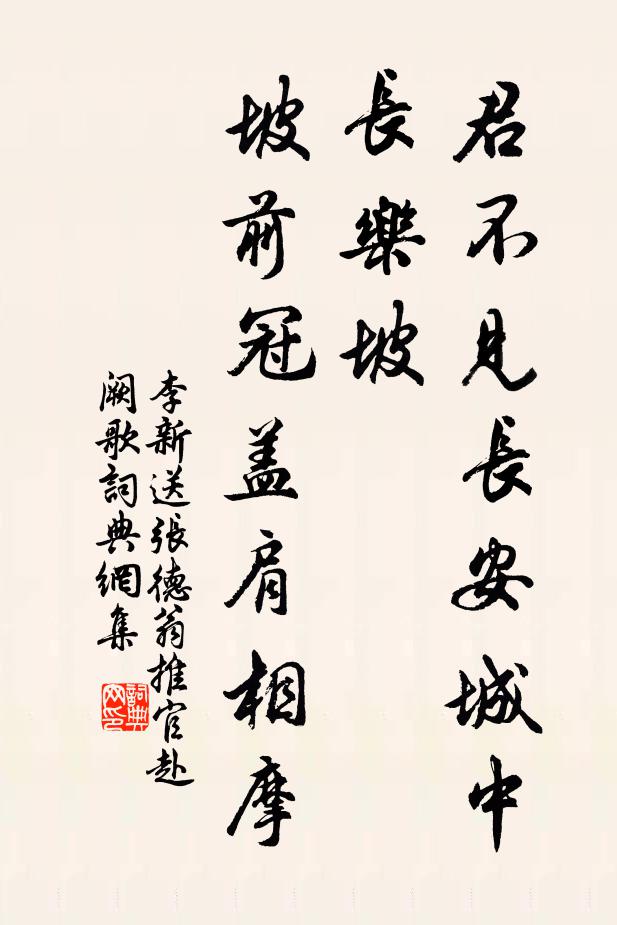 君不見長安城中
長樂坡
坡前冠盖肩相摩
李新送張德翁推官赴
闕歌詞典網集
詞典
网印